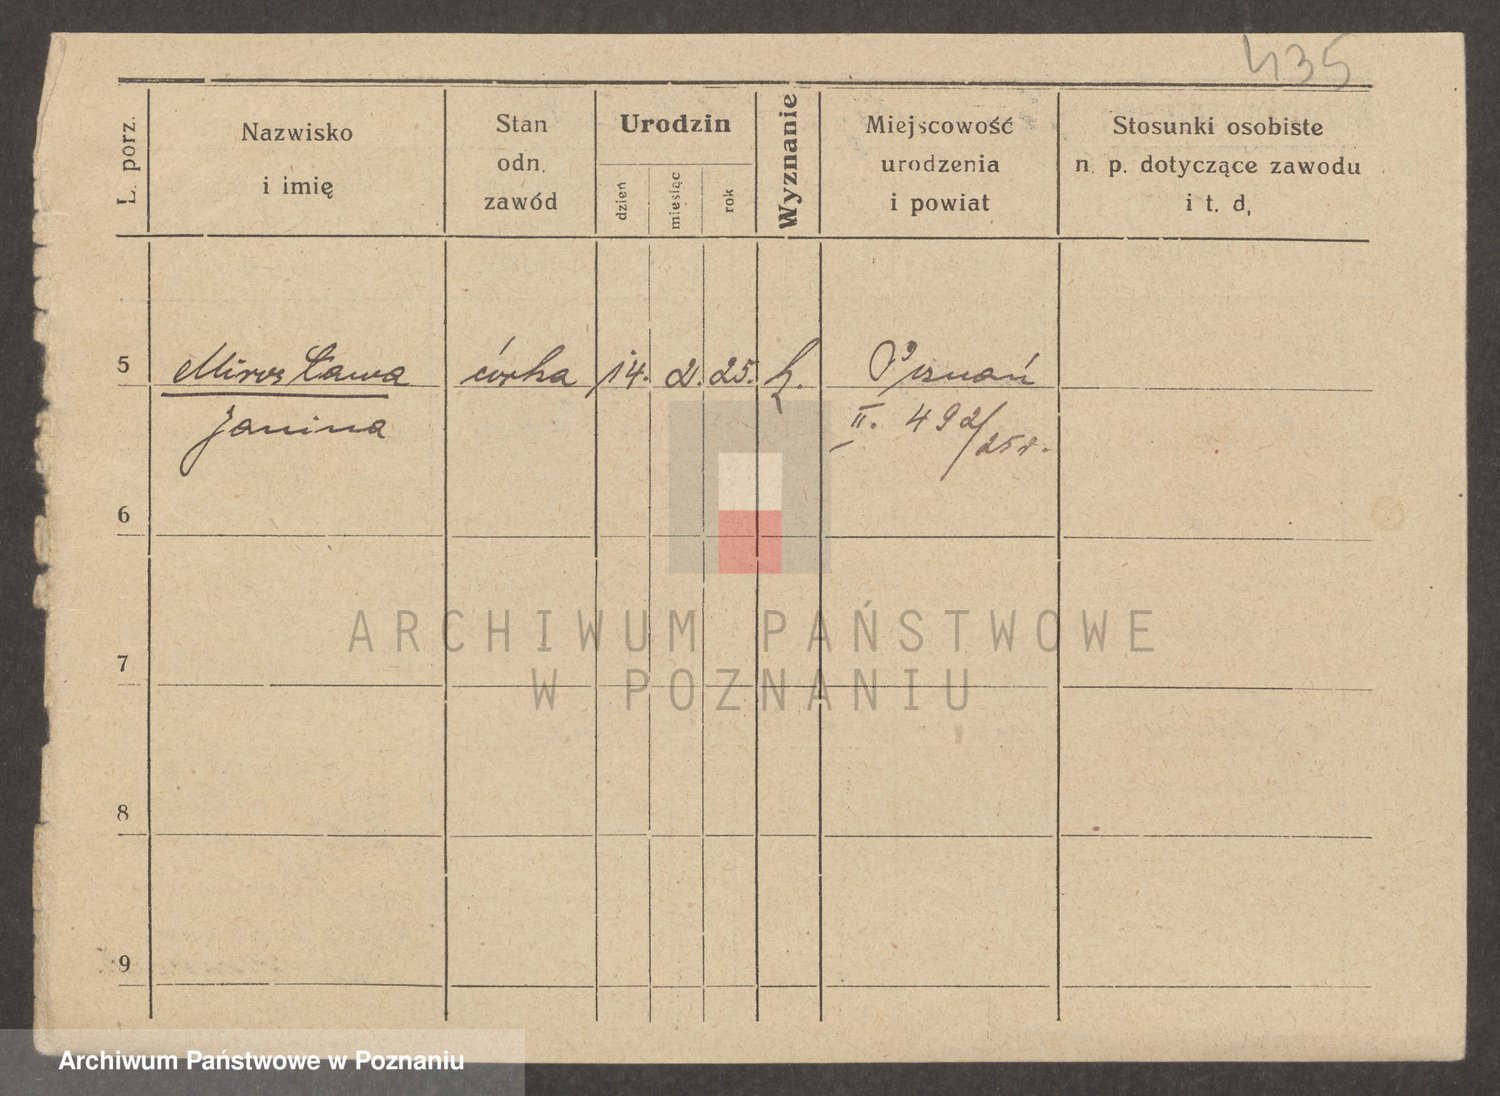 435
L. porz.
Nazwisko
i imię
Stan
odn.
zawód
Urodzin
dzień
miesiąc
rok
Wyznanie
Miejscowość
urodzenia
i powiat
Stosunki osobiste
n. p. dotyczące zawodu
i t. d,
5 Mirosława córka 14. 2. 25. k. Poznań
Janina II. 492/25r.
6
7
8
9
ARCHIWUM PAŃSTWOWE
W POZNANIU
Archiwum Państwowe w Poznaniu